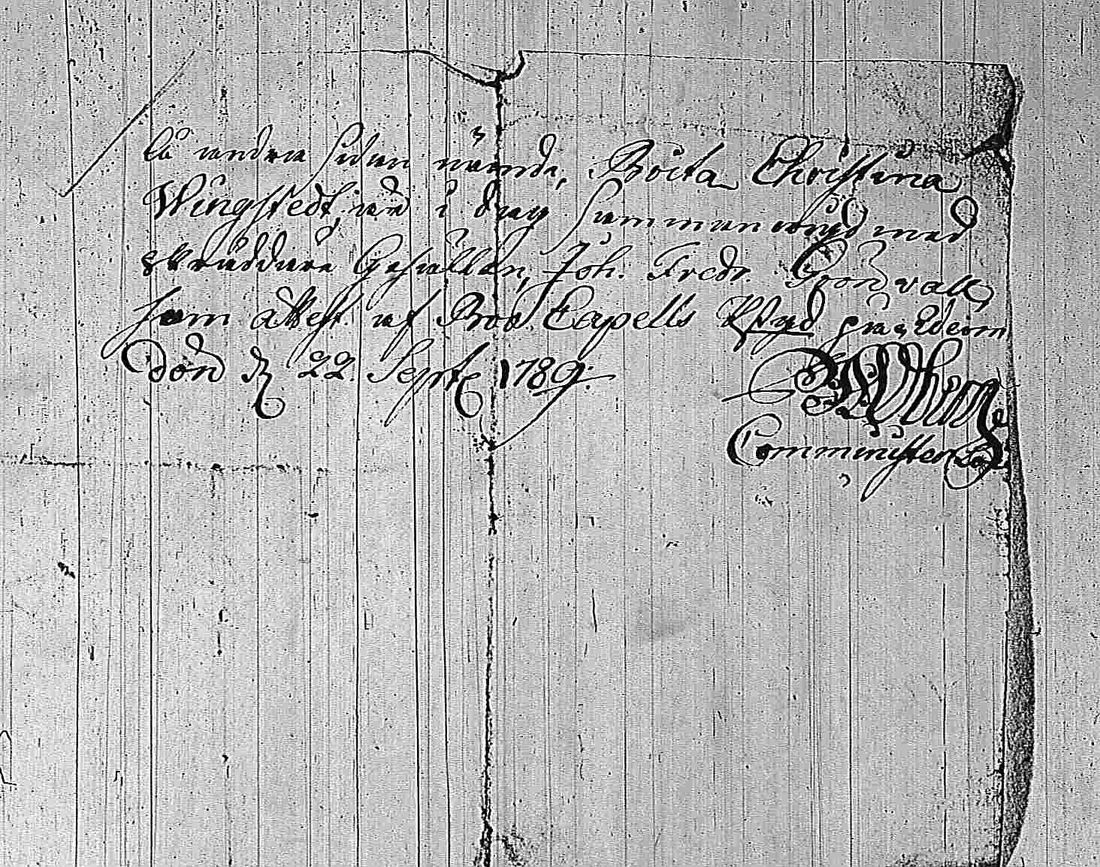 På andra sidan nämde, Brita Christina
Wingstedt, är i dag sammanwigd med
skräddare Gesällen, Joh. Fredr. Grönvall,
som attest. af Broo Capells
d 22. Sept. 1789.
Comminister